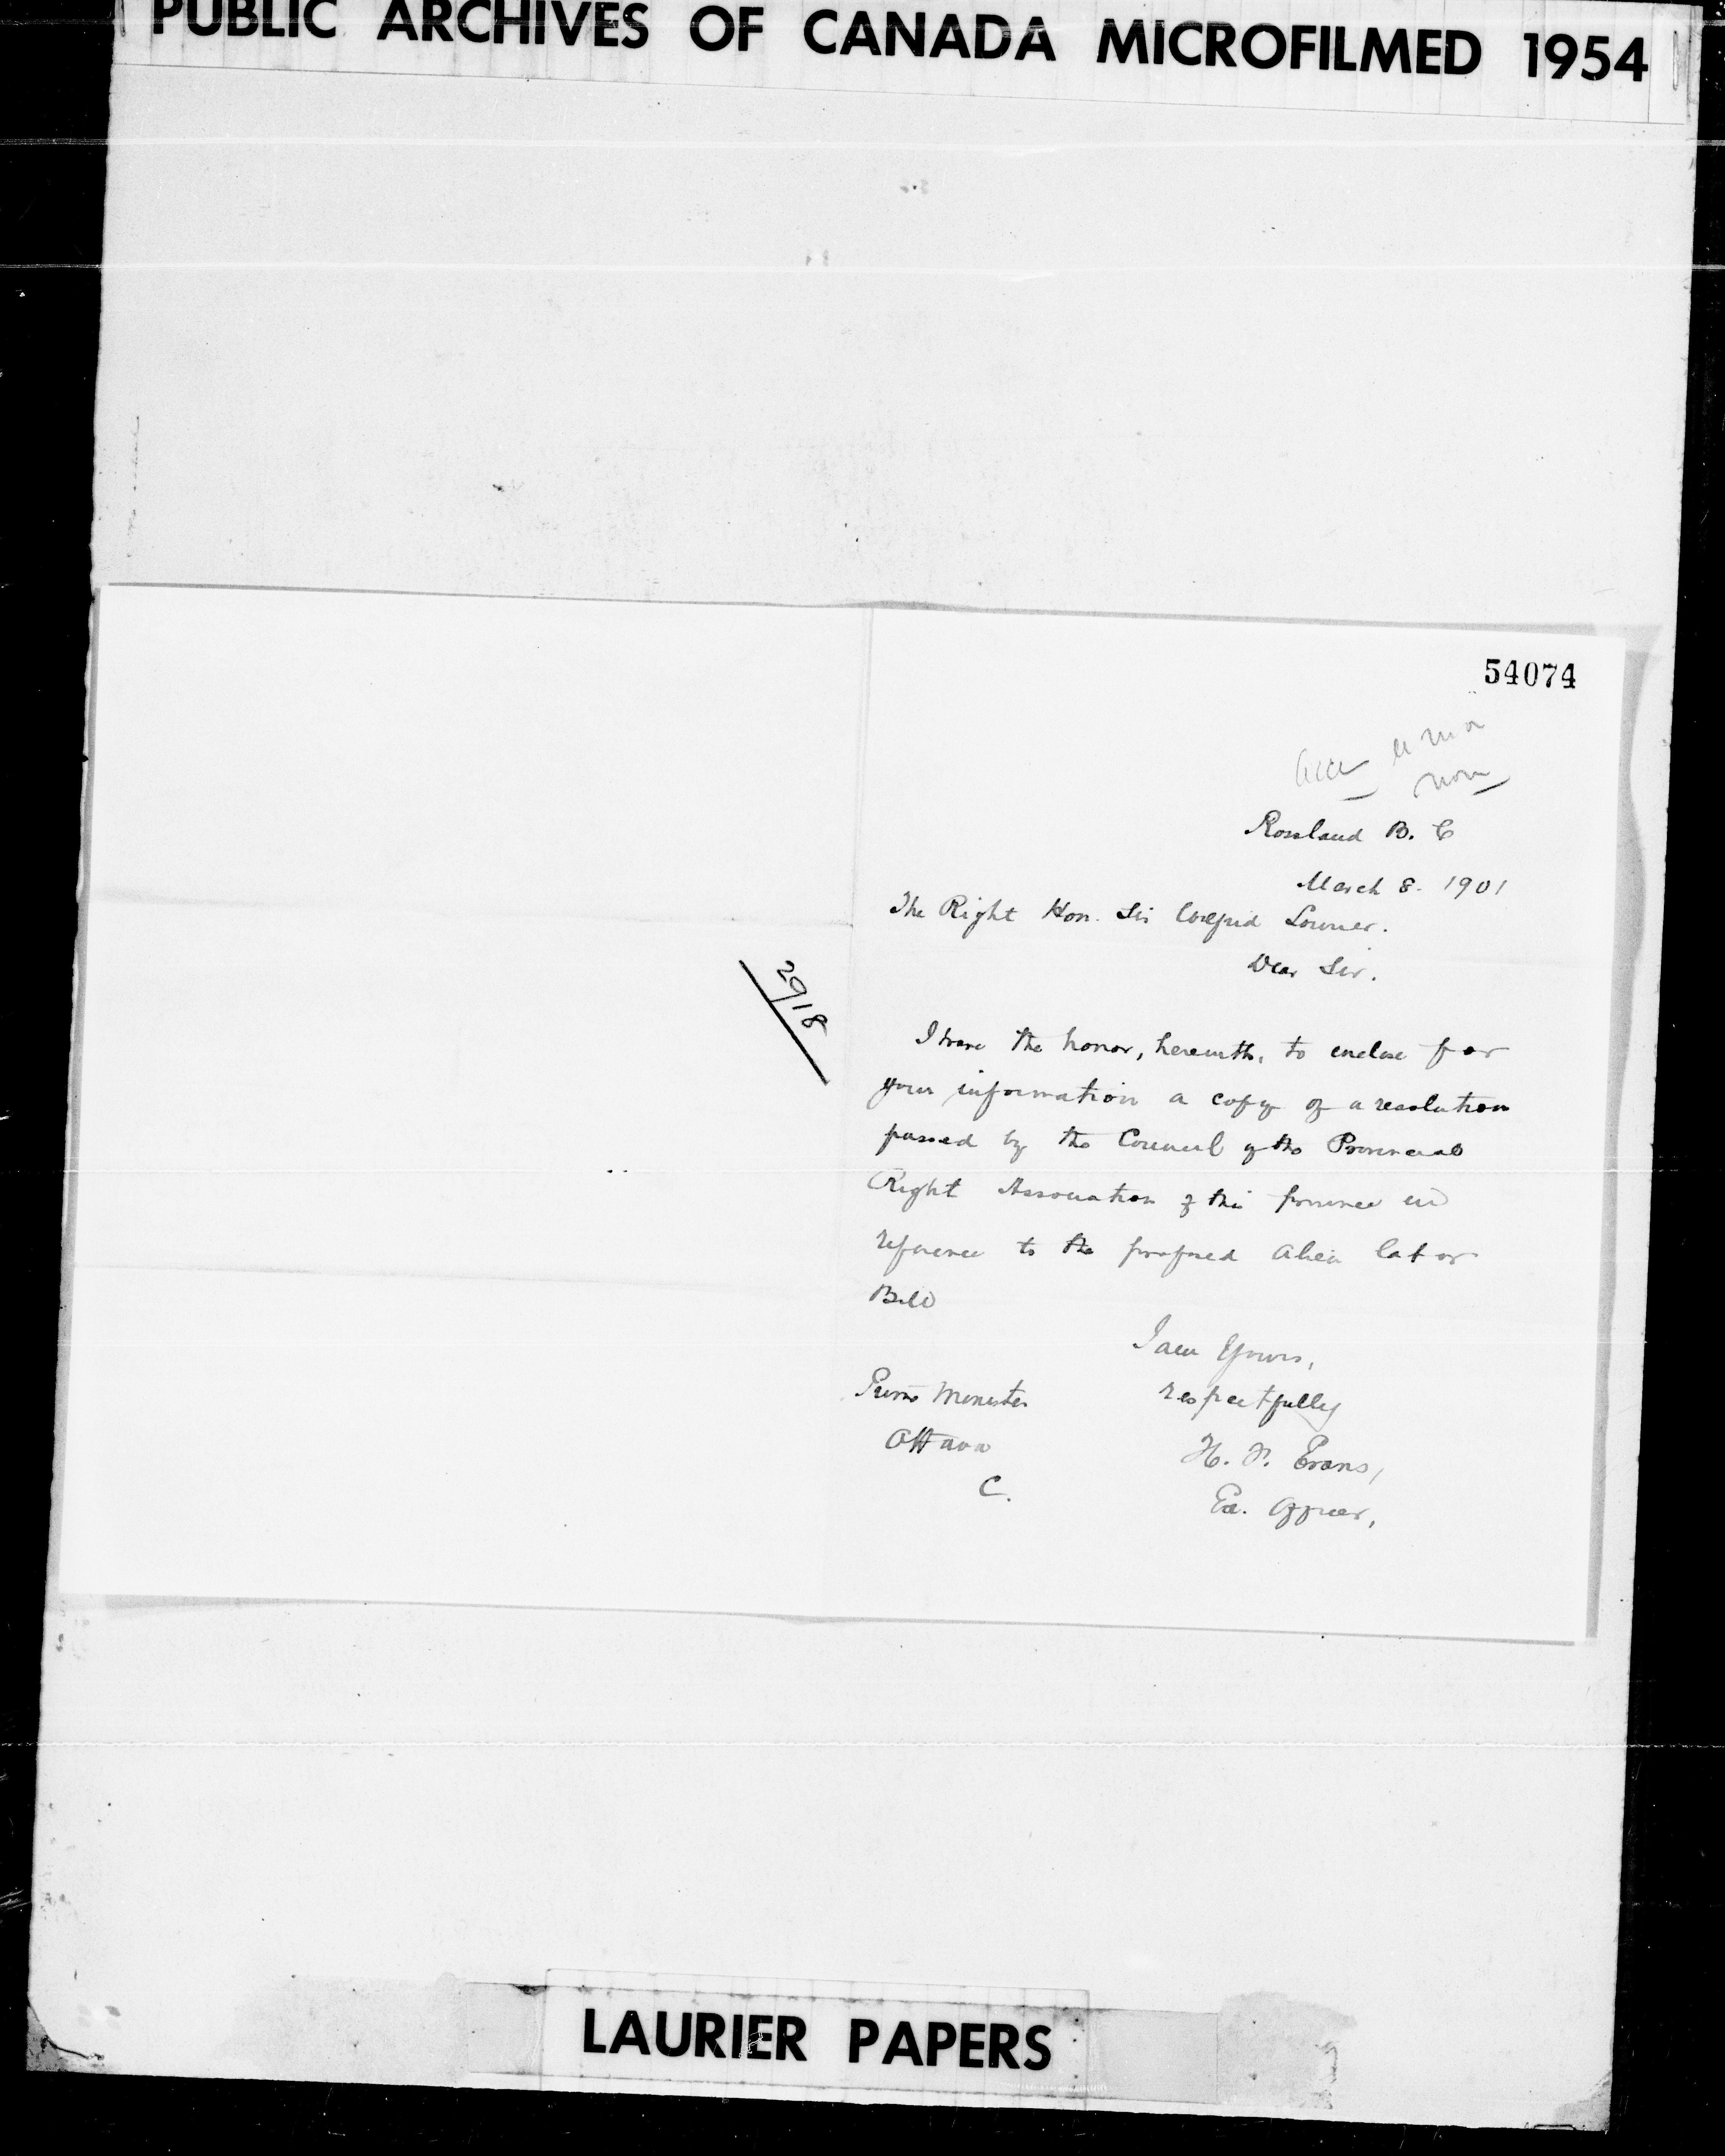 PUBLIC ARCHIVES OF CANADA MICROFILMED 1954
54074
Rossland B. C
March 8. 1901
The Right Hon. Sir Wilfrid Lourier.
Dear Sir.
2918
I have the honor, herewith, to enclose for
your information a copy of a resolution
passed by the Council of the Provincial
Right Association of this province in
reference to the proposed Alien labor
Bill
I am Yours,
respectfully
Prime Minister
Ottawa
C.
H. P. Evans,
Ex. Officer,
LAURIER PAPERS